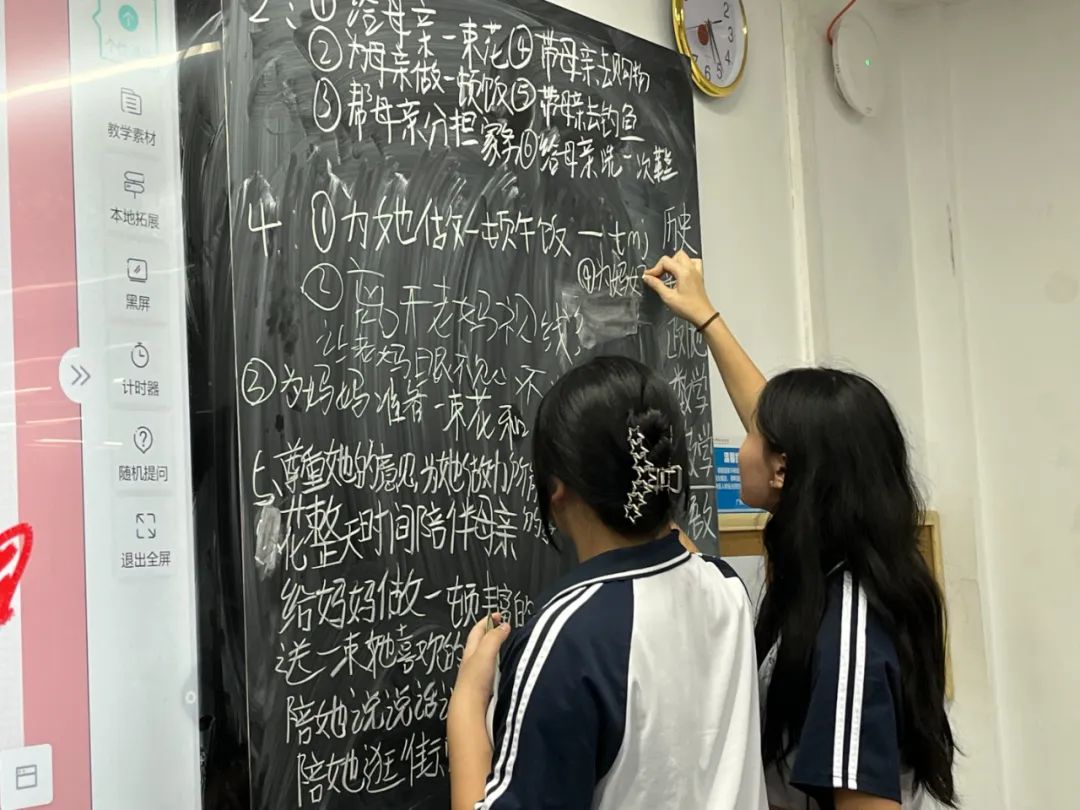 教学素材
本地拓展
黑屏
计时器
随机提问
退出全屏
2:① 给母亲一束花 ④ 带母亲去购物
② 为母亲做一顿饭 ⑤ 带母亲去钓鱼
③ 帮母亲分担家务 ⑥ 给母亲洗一次
4:① 为她做一顿午饭
② 离开老妈视线
让老妈眼不见心不
③ 为妈妈准备一束花和
④ 为妈妈
5、尊重她的意见,为她做力所
花整天时间陪伴母亲
给妈妈做一顿丰富的
送一束她喜欢的
陪她说说话
陪她逛街
历史
政治
数学
2
3
4
5
6
7